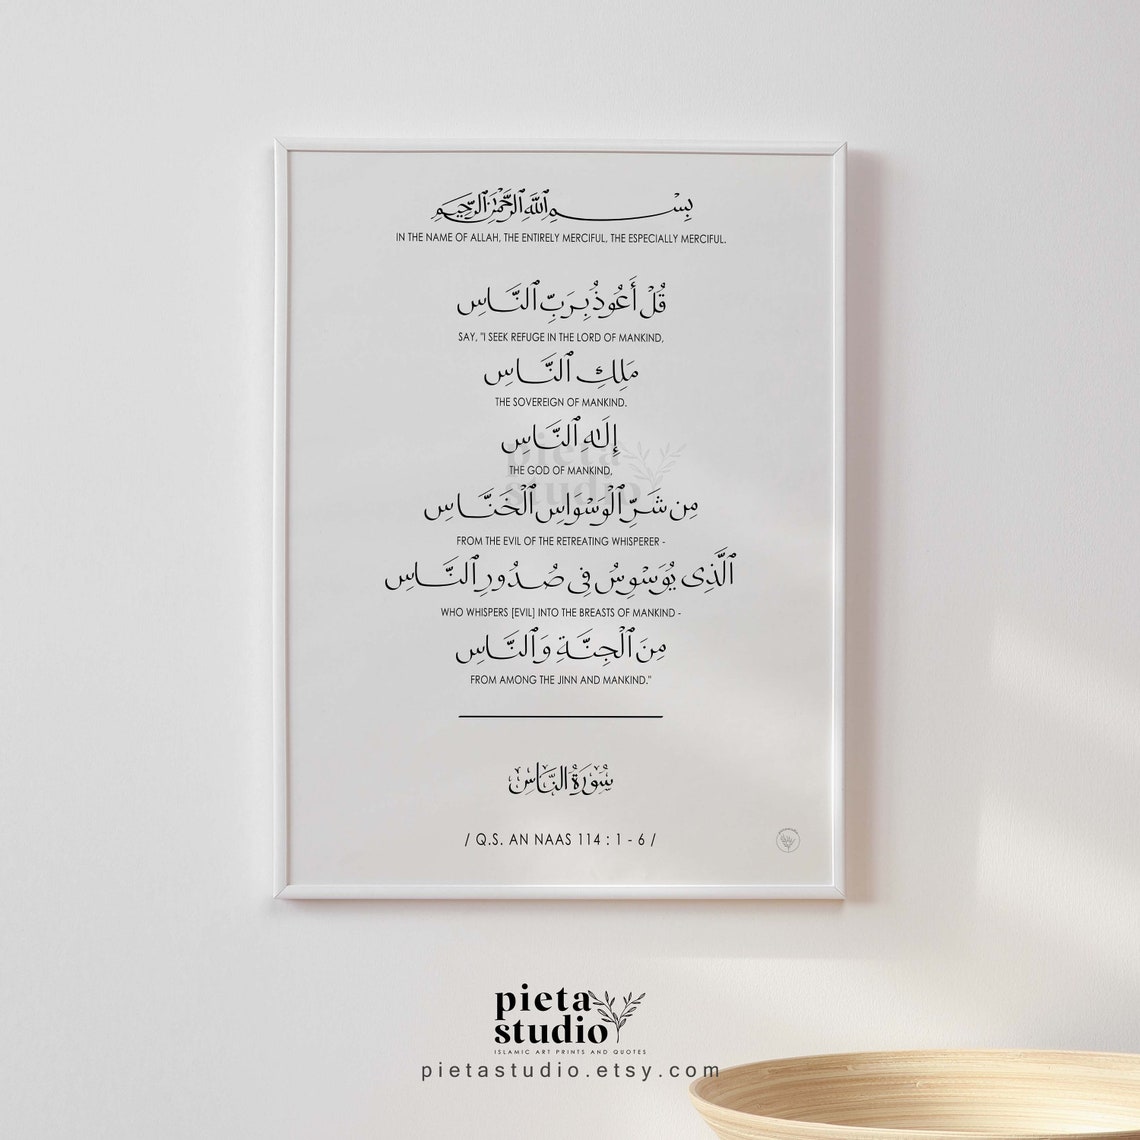 بِسْمِ ٱللَّهِ ٱلرَّحْمَٰنِ ٱلرَّحِيمِ
IN THE NAME OF ALLAH, THE ENTIRELY MERCIFUL, THE ESPECIALLY MERCIFUL.
قُلْ أَعُوذُ بِرَبِّ ٱلنَّاسِ
SAY, "I SEEK REFUGE IN THE LORD OF MANKIND,
مَلِكِ ٱلنَّاسِ
THE SOVEREIGN OF MANKIND.
إِلَٰهِ ٱلنَّاسِ
THE GOD OF MANKIND,
مِن شَرِّ ٱلْوَسْوَاسِ ٱلْخَنَّاسِ
FROM THE EVIL OF THE RETREATING WHISPERER -
ٱلَّذِى يُوَسْوِسُ فِى صُدُورِ ٱلنَّاسِ
WHO WHISPERS [EVIL] INTO THE BREASTS OF MANKIND -
مِنَ ٱلْجِنَّةِ وَٱلنَّاسِ
FROM AMONG THE JINN AND MANKIND."
سُورَةُ النَّاسِ
/ Q.S. AN NAAS 114 : 1 - 6 /
pieta
studio
pieta
studio
ISLAMIC ART PRINTS AND QUOTES
pietastudio.etsy.com